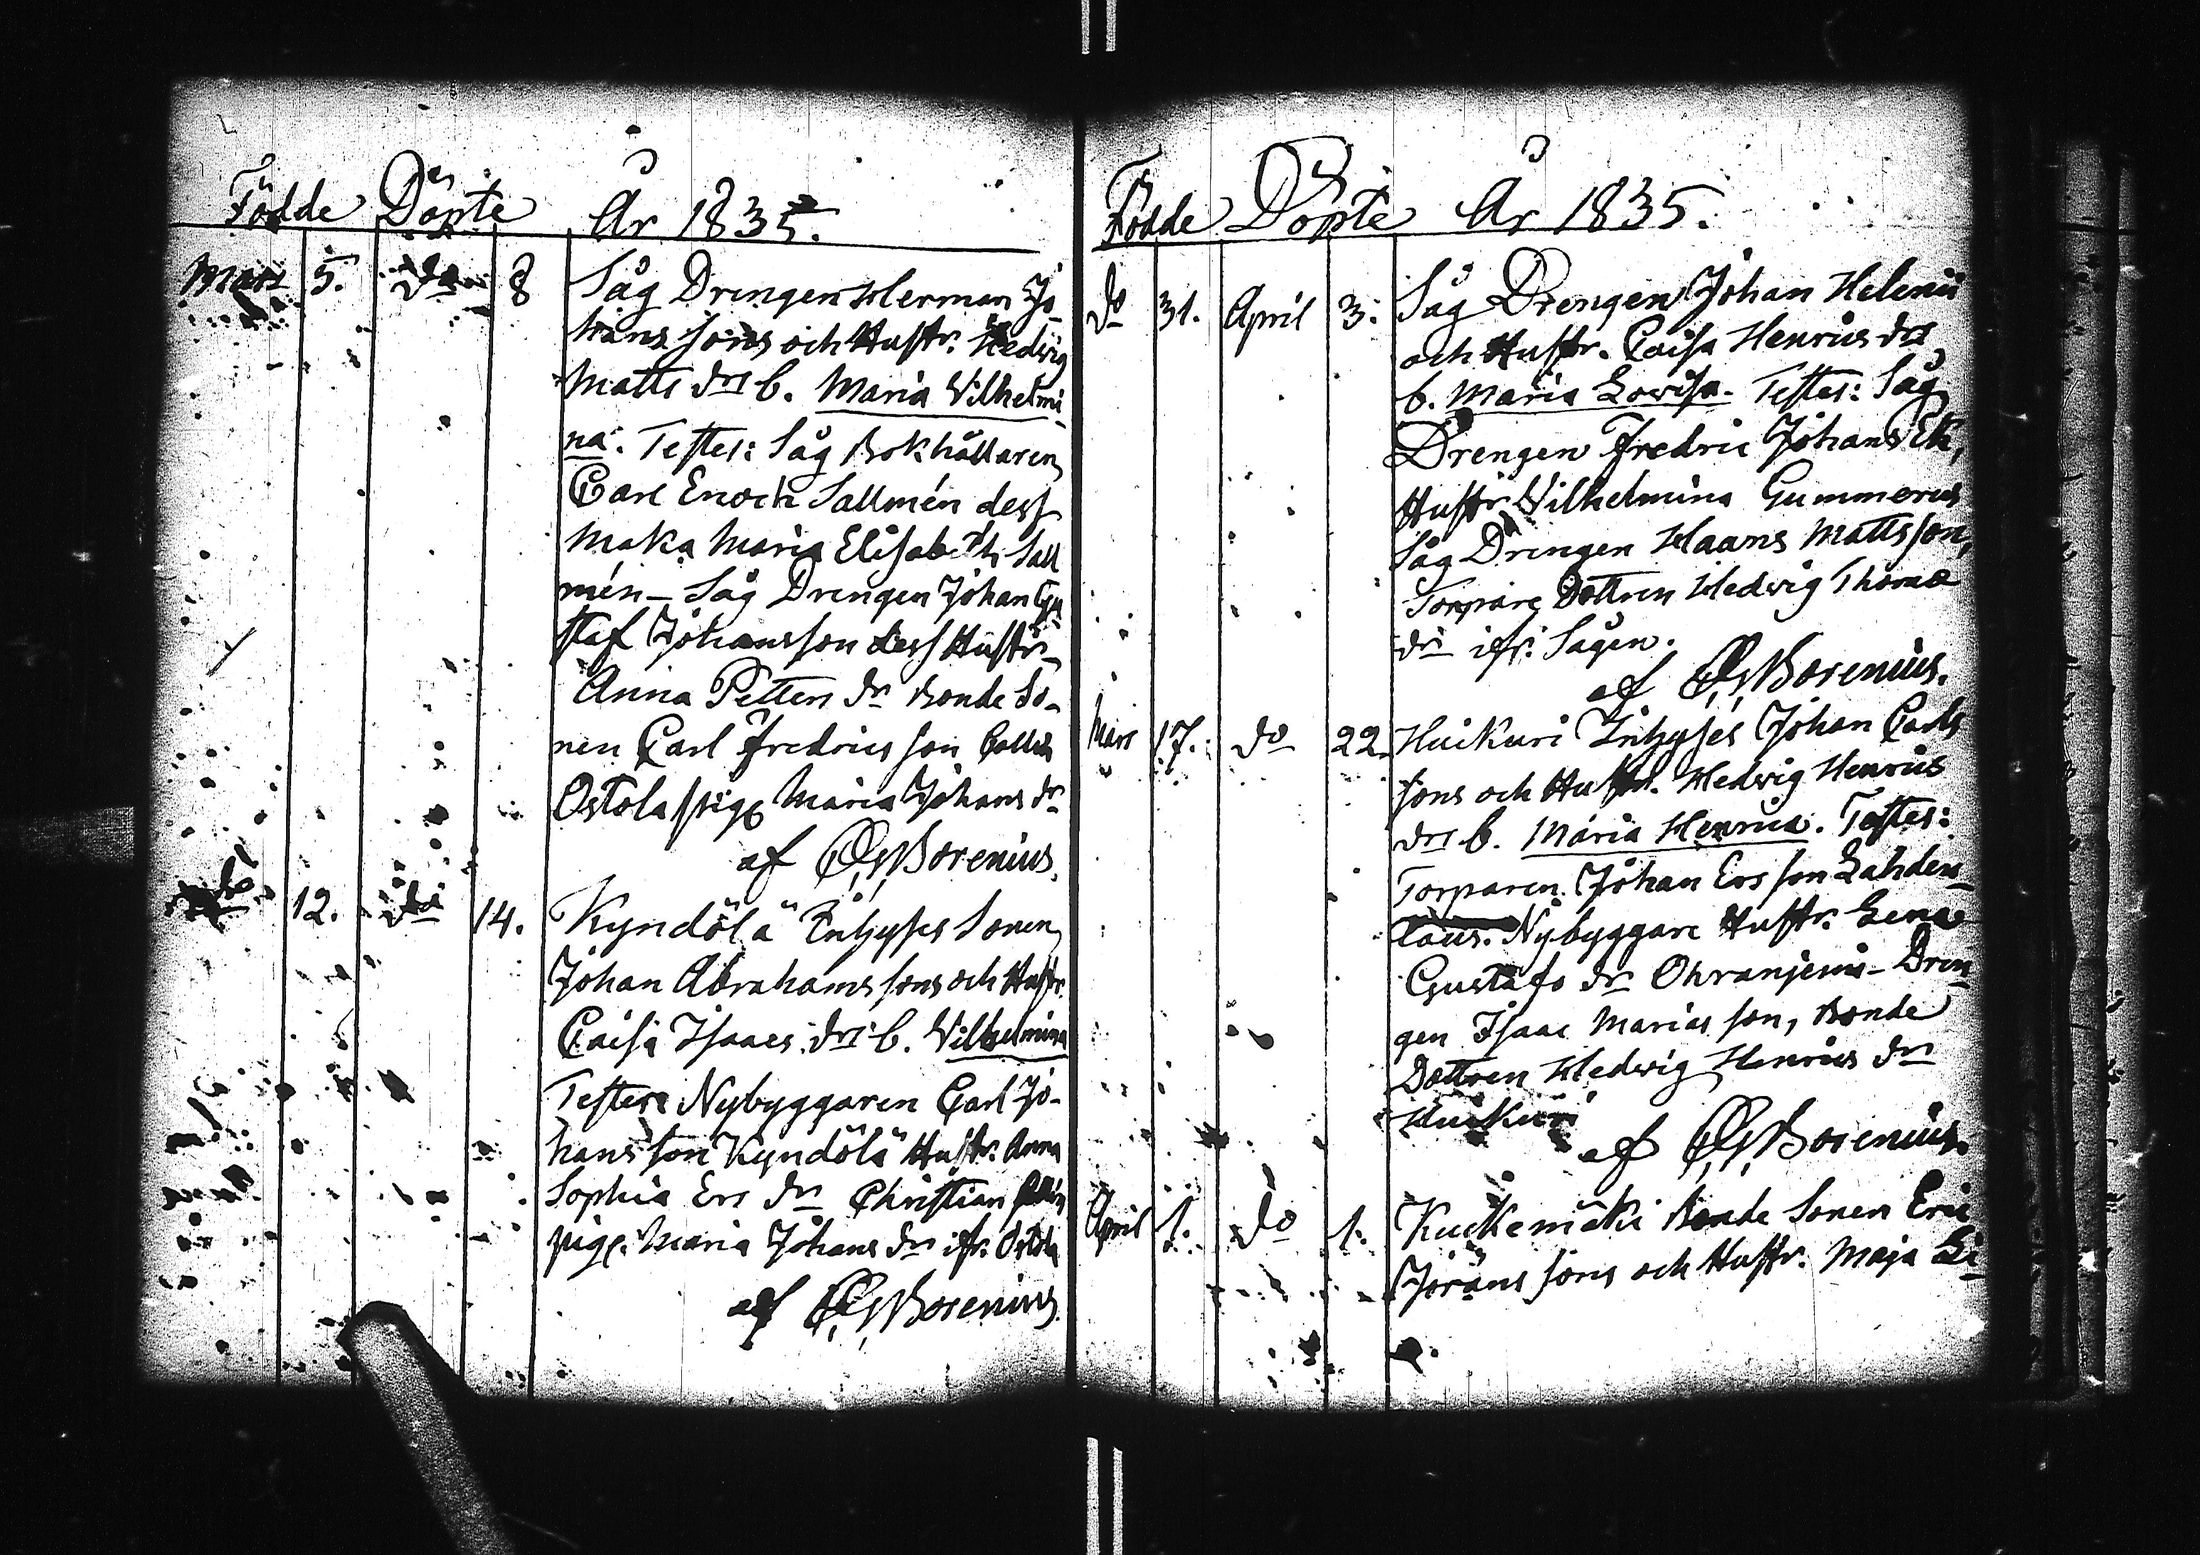 Födde Döpte År 1835.
Mars 5. do 8 Såg Drengen Herman Jo-
hans sons och Hustr. Hedvig
Matts drs b. Maria Vilhelmi-
na. Testes: Såg Bokhållaren
Carl Enoch Sallmén dess
Maka Maria Elisabeth Sall
mén - Såg Drengen Johan Gu
staf Johansson dess Hustr.
Anna Petters dr Bonde So-
nen Carl Fredrics son
Ostola pige Maria Johans dr
af C. G. Borenius.
do 12. do 14. Kyndölä Inhyses Sonen
Johan Abrahams sons och Hustr.
Caisa Isaacs drs b. Vilhelmina
Testes: Nybyggaren Carl Jo-
hans son Kyndölä Hustr. Anna
Sophia Ers dr Christian
pige. Maria Johans dr ifr. Ostola
af C. G. Borenius.
Födde Döpte År 1835.
do 31. April 3. Såg Drengen Johan Helenii
och Hustr. Caisa Henrics drs
b. Maria Lovisa. Testes: Såg
Drengen Fredric Johans Ek,
Hustr. Vilhelmina Gummerus
Såg Drengen Haans Mattsson,
Torpare Dottren Hedvig Thomæ
dr ifr. Sågen.
af C. G. Borenius.
Mars 17. do 22. Huikuri Inhyses Johan Carls
sons och Hustr. Hedvig Henrics
drs b. Maria Henrica. Testes:
Torparen Johan Ers son Lahden-
Nybyggare Hustr. Lena
Gustafs dr Ohranjemi - Dren
gen Isaac Marias son, Bonde
Dottren Hedvig Henrics dr
Huikuri
af C. G. Borenius.
April 1. do 1. Kuckemäki Bonde Sonen Eric
Jörans sons och Hustr. Maja Li-